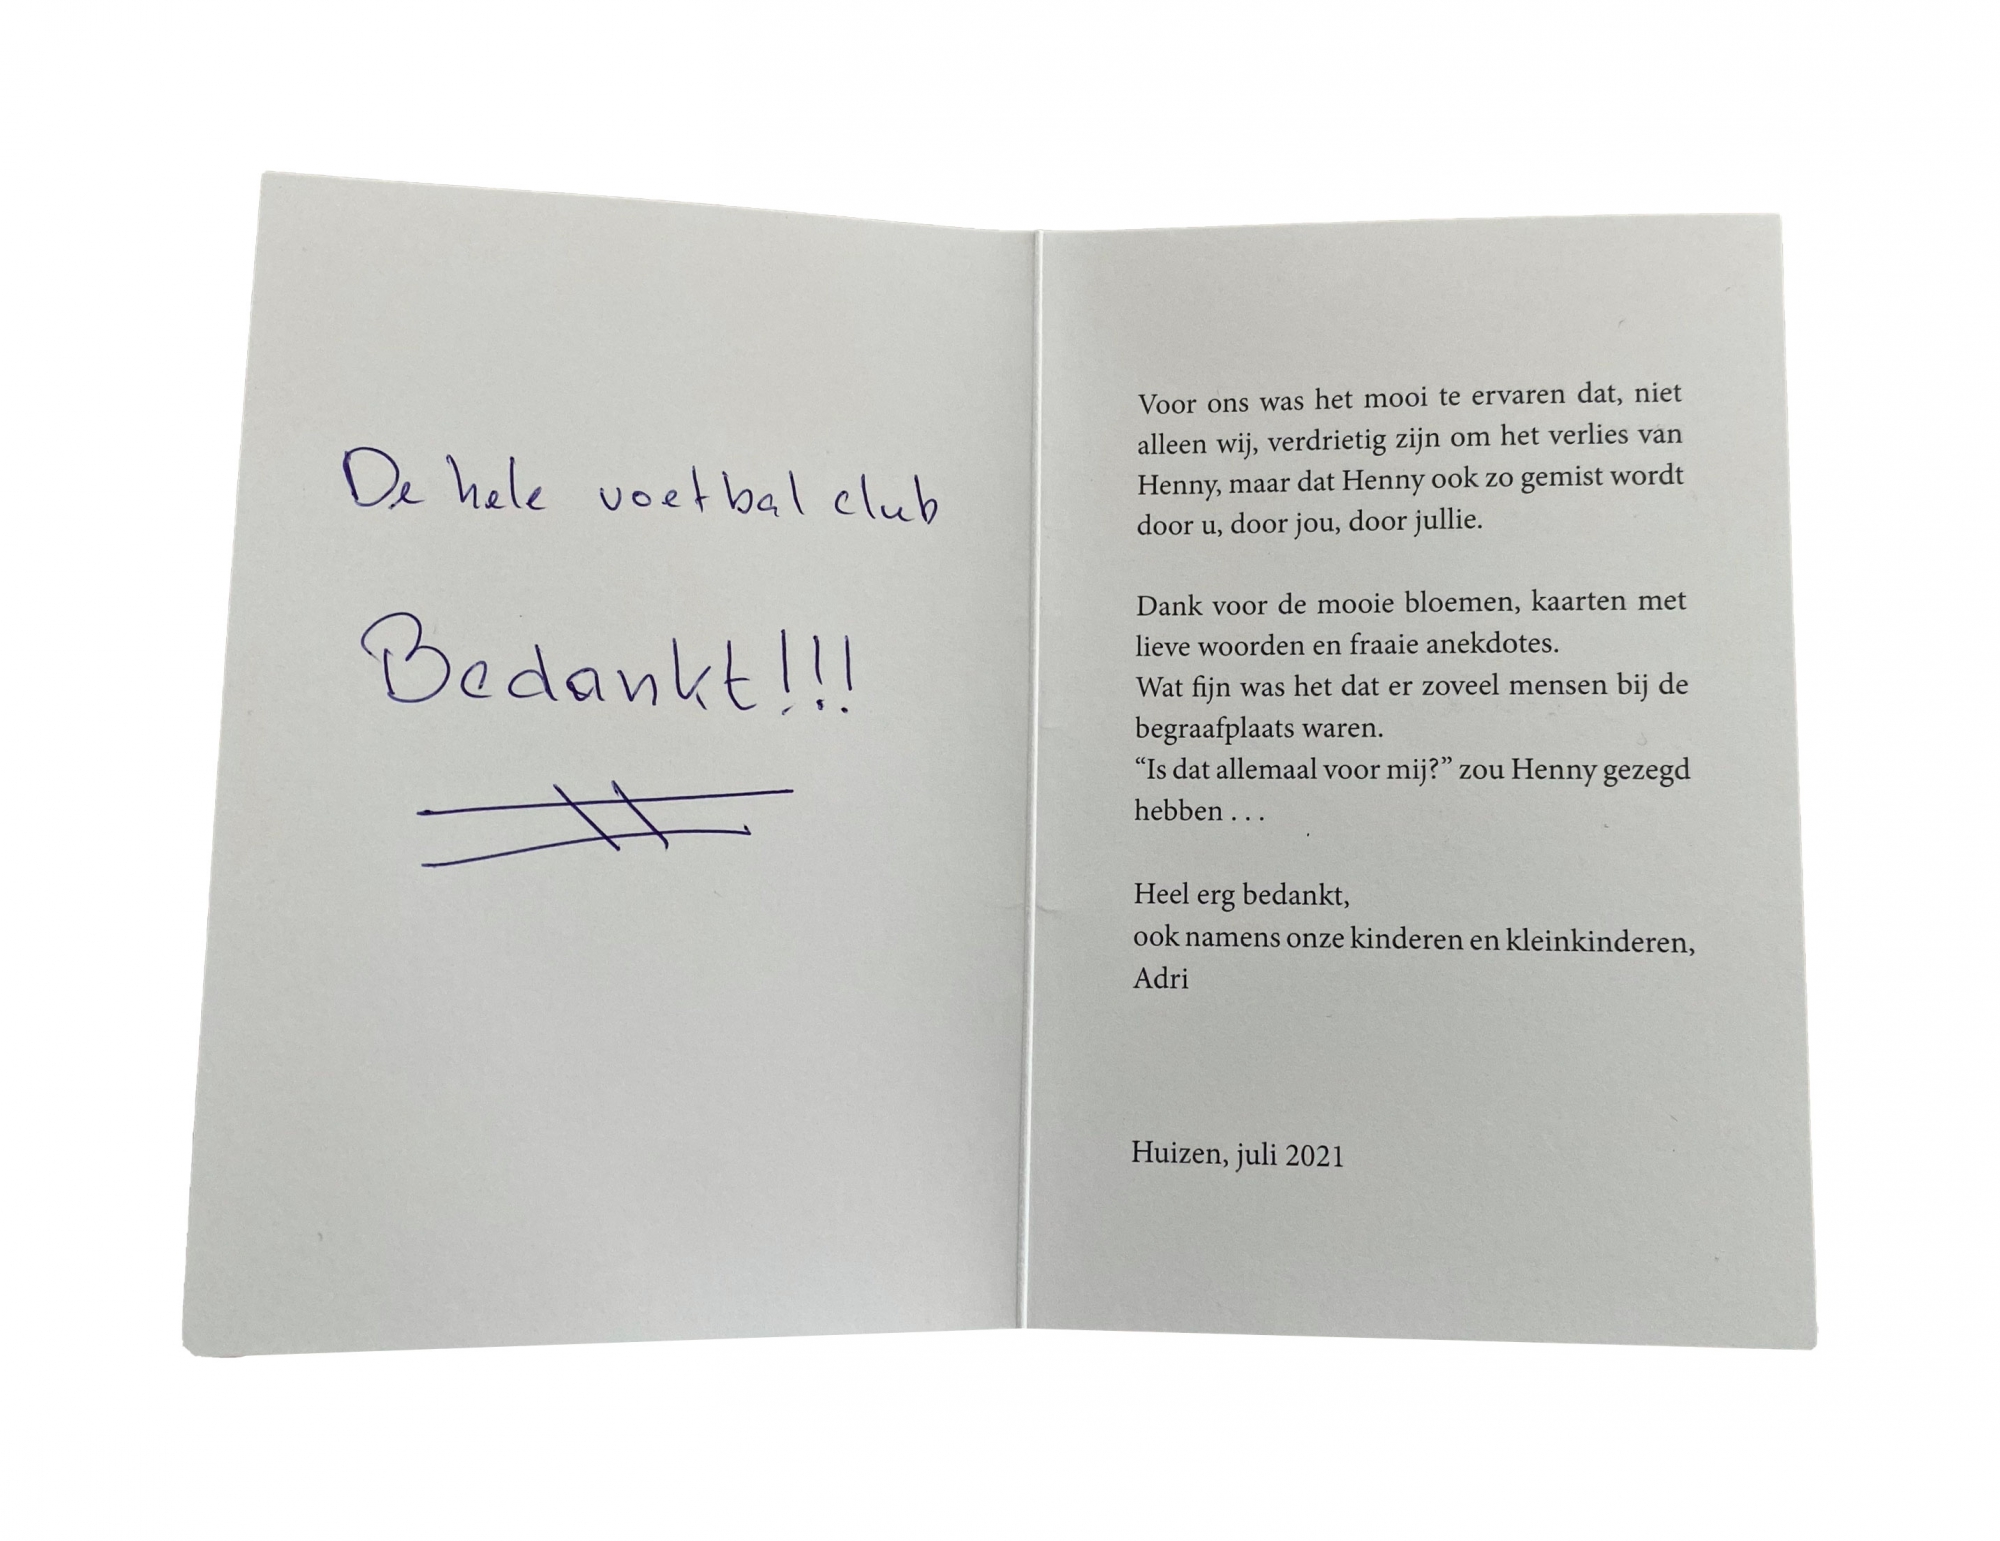 De hele voetbal club
Bedankt!!!
Voor ons was het mooi te ervaren dat, niet
alleen wij, verdrietig zijn om het verlies van
Henny, maar dat Henny ook zo gemist wordt
door u, door jou, door jullie.
Dank voor de mooie bloemen, kaarten met
lieve woorden en fraaie anekdotes.
Wat fijn was het dat er zoveel mensen bij de
begraafplaats waren.
“Is dat allemaal voor mij?” zou Henny gezegd
hebben . . .
Heel erg bedankt,
ook namens onze kinderen en kleinkinderen,
Adri
Huizen, juli 2021